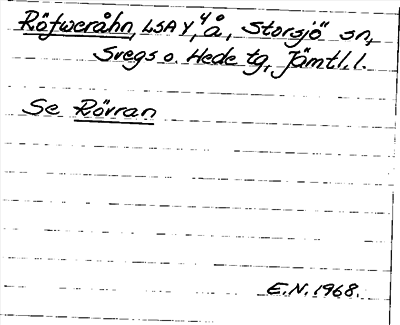 Röfweråhn, LSA Y,4 å, Storsjö sn,
Svegs o. Hede tg, Jämtl. l.
Se Rövran
E.N. 1968.